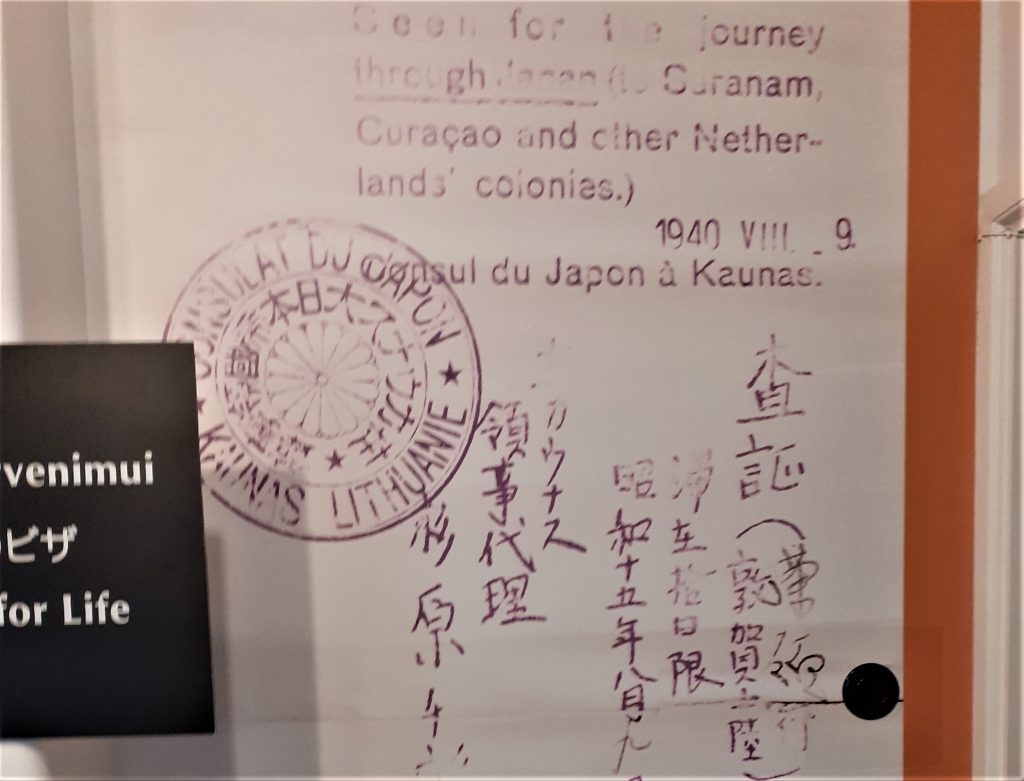 Seen for the journey
through Japan (to Suranam,
Curaçao and other Nether-
lands' colonies.)
1940 VIII. _ 9.
Consul du Japon à Kaunas.
CONSULAT DU JAPON
KAUNAS LITHUANIE
在カウナス大日本帝國領事館
査証(敦賀上陸)
滞在拾日限
昭和十五年八月九
カウナス
領事代理
杉原千
venimui
ビザ
for Life